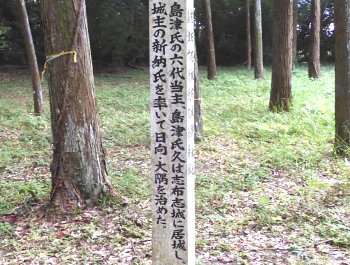 島津氏の六代当主、島津氏久は志布志城に居城し、
城主の新納氏を率いて日向・大隅を治めた。